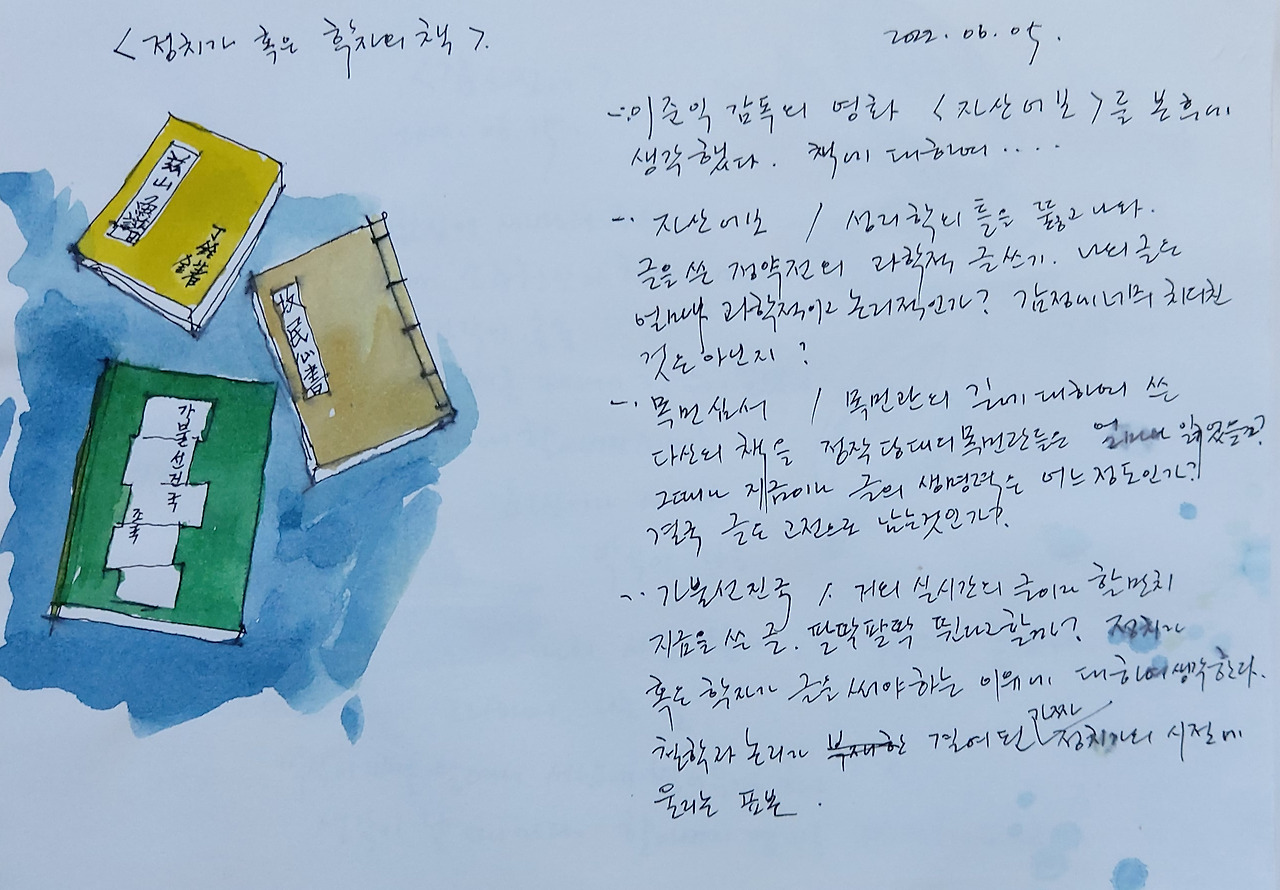 <정치가 혹은 학자의 책>.
2022. 06. 05.
玆山魚譜
丁銓著
牧民心書
가불선진국
조국
-:. 이준익 감독의 영화 <자산어보>를 본 후에
생각했다. 책에 대하여....
-. 자산어보 / 성리학의 틀을 뚫고 나와.
글을 쓴 정약전의 과학적 글쓰기. 나의 글은
얼마나 과학적이고 논리적인가? 감정에 너무 치다친
것은 아닌지?
-. 목민심서 / 목민관의 길에 대하여 쓴
다산의 책을 정작 당대의 목민관들은 얼마나 읽었을까?
그때나 지금이나 글의 생명력은 어느 정도인가?
결국 글도 고전으로 남는것인가?
-. 가불선진국 /. 거의 실시간의 글이라 할만치
지금을 쓴 글. 팔딱팔딱 뛴다고할까? 정치가
혹은 학자가 글을 써야 하는 이유에 대하여 생각한다.
철학과 논리가 부재한 결여된 가짜 정치가의 시절에
울리는 표본.